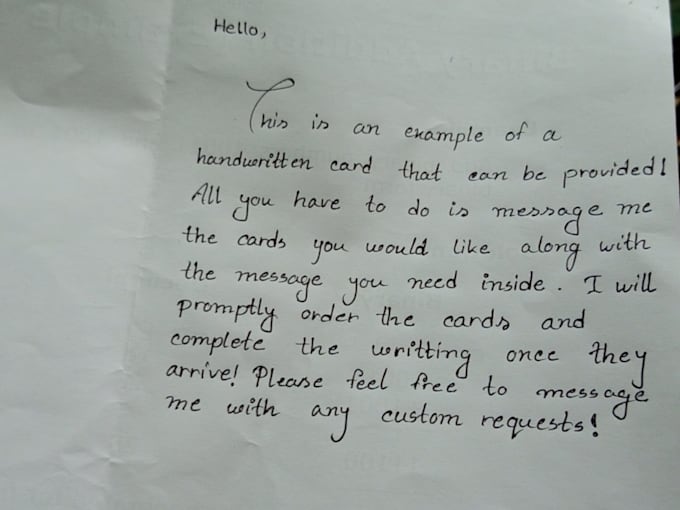 Hello,
This is an example of a
handwritten card that can be provided!
All you have to do is message me
the cards you would like along with
the message you need inside. I will
promptly order the cards and
complete the writting once they
arrive! Please feel free to message
me with any custom requests!